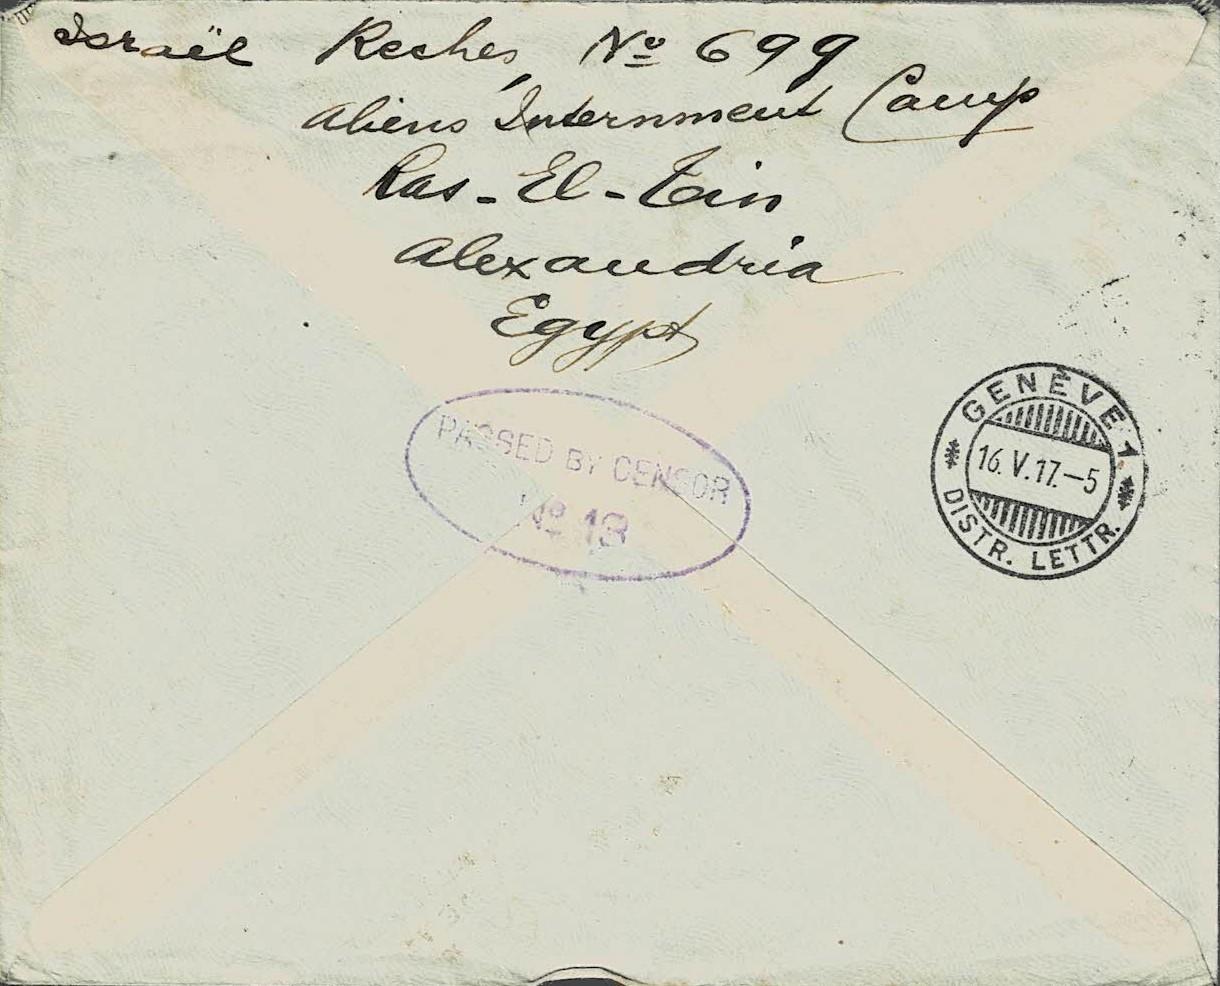 Israël Reches, Nº 699
Aliens Internment Camp
Ras-El-Tin
Alexandria
Egypt
PASSED BY CENSOR
Nº 13
GENÈVE 1
16.V.17.-5
DISTR. LETTR.